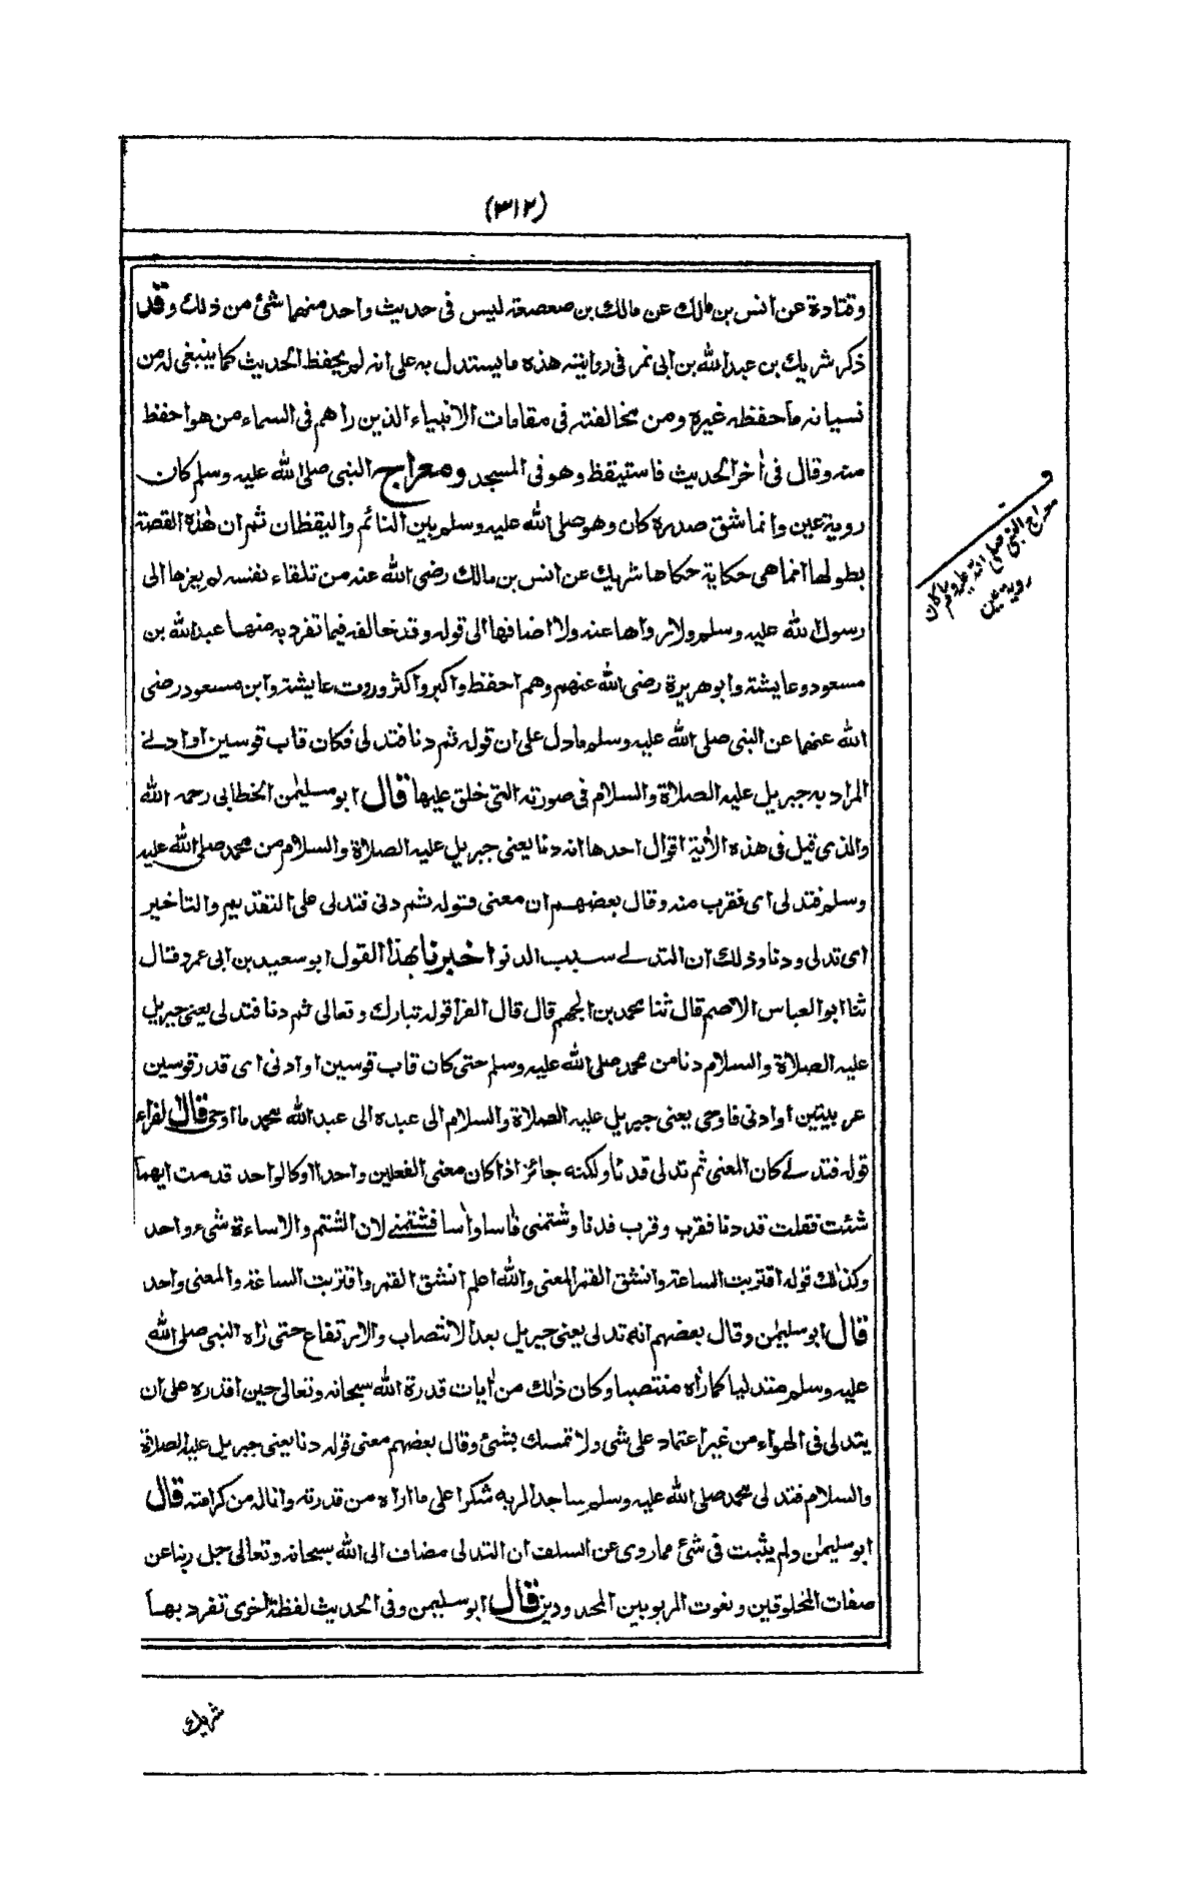 (٣١٢)
وقتادة عن انس بن مالك عن مالك بن صعصعة ليس فى حديث واحد منهما شئ من ذلك وقد
ذكر شريك بن عبد الله بن ابى نمر فى روايته هذه ما يستدل به على انه لم يحفظ الحديث كما ينبغى له من
نسيانه ما حفظه غيره ومن مخالفته فى مقامات الانبياء الذين راهم فى السماء من هو احفظ
منه وقال فى أخر الحديث فاستيقظ وهو فى المسجد ومعراج النبى صلى الله عليه وسلم كان
روية عين وانما شق صدره كان وهو صلى الله عليه وسلم بين النائم واليقظان ثم ان هٰذه القصة
بطولها انما هى حكاية حكاها شريك عن انس بن مالك رضى الله عنه من تلقاء نفسه لم يعزها الى
رسول الله عليه وسلم ولا رواها عنه ولا اضافها الى قوله وقد خالفه فيما تفرد به منها عبد الله بن
مسعود وعايشة وابو هريرة رضى الله عنهم وهم احفظ واكبر واكثر وروت عايشة وابن مسعود رضى
الله عنهما عن النبى صلى الله عليه وسلم ما دل على ان قوله ثم دنا فتدلى فكان قاب قوسين او ادنے
المراد به جبريل عليه الصلاة والسلام فى صورته التى خلق عليها قال ابو سليمٰن الخطابى رحمه الله
والذى قيل فى هذه الأية اقوال احدها انه دنا يعنى جبريل عليه الصلاة والسلام من محمد صلى الله عليه
وسلم فتدلى اى فقرب منه وقال بعضهم ان معنى قوله ثم دنى فتدلى على التقديم والتاخير
اى تدلى ودنا وذلك ان التدلے سبب الدنو اخبرنا بهذا القول ابو سعيد بن ابى عمرو قال
ثنا ابو العباس الاصم قال ثنا محمد بن الجهم قال قال الفرا قوله تبارك وتعالى ثم دنا فتدلى يعنى جبريل
عليه الصلاة والسلام دنا من محمد صلى الله عليه وسلم حتى كان قاب قوسين او ادنى اى قدر قوسين
عربيتين او ادنى فاوحى يعنى جبريل عليه الصلاة والسلام الى عبده الى عبد الله محمد ما اوحى قال الفراء
قوله فتدلے كان المعنى ثم تدلى فدنا ولكنه جائز اذا كان معنى الفعلين واحدا اوكالواحد قدمت ايهما
شئت فقلت قد دنا فقرب وقرب فدنا وشتمنى فاساء واسا فشتمنے لان الشتم والاساءة شىء واحد
وكذلك قوله اقتربت الساعة وانشق القمر المعنى والله اعلم انشق القمر واقتربت الساعة والمعنى واحد
قال ابو سليمٰن وقال بعضهم انه تدلى يعنى جبريل بعد الانتصاب والارتفاع حتى رٰاه النبى صلى الله
عليه وسلم متدليا كما رأه منتصبا وكان ذٰلك من أيات قدرة الله سبحانه وتعالى حين اقدره على ان
يتدلى فى الهواء من غير اعتماد على شى ولا تمسك بشئ وقال بعضهم معنى قوله دنا يعنى جبريل عليه الصلاة
والسلام فتدلى محمد صلى الله عليه وسلم ساجدا لربه شكرا على ما اراه من قدرته وانا له من كرامته قال
ابو سليمٰن ولم يثبت فى شئ مما روى عن السلف ان التدلى مضاف الى الله سبحانه وتعالى جل ربنا عن
صفات المخلوقين ونعوت المربوبين المحدودين قال ابو سليمن وفى الحديث لفظة اخرى تفرد بها
ف
معراج النبى صلى الله عليه وسلم ما كان
روية عين
شريك